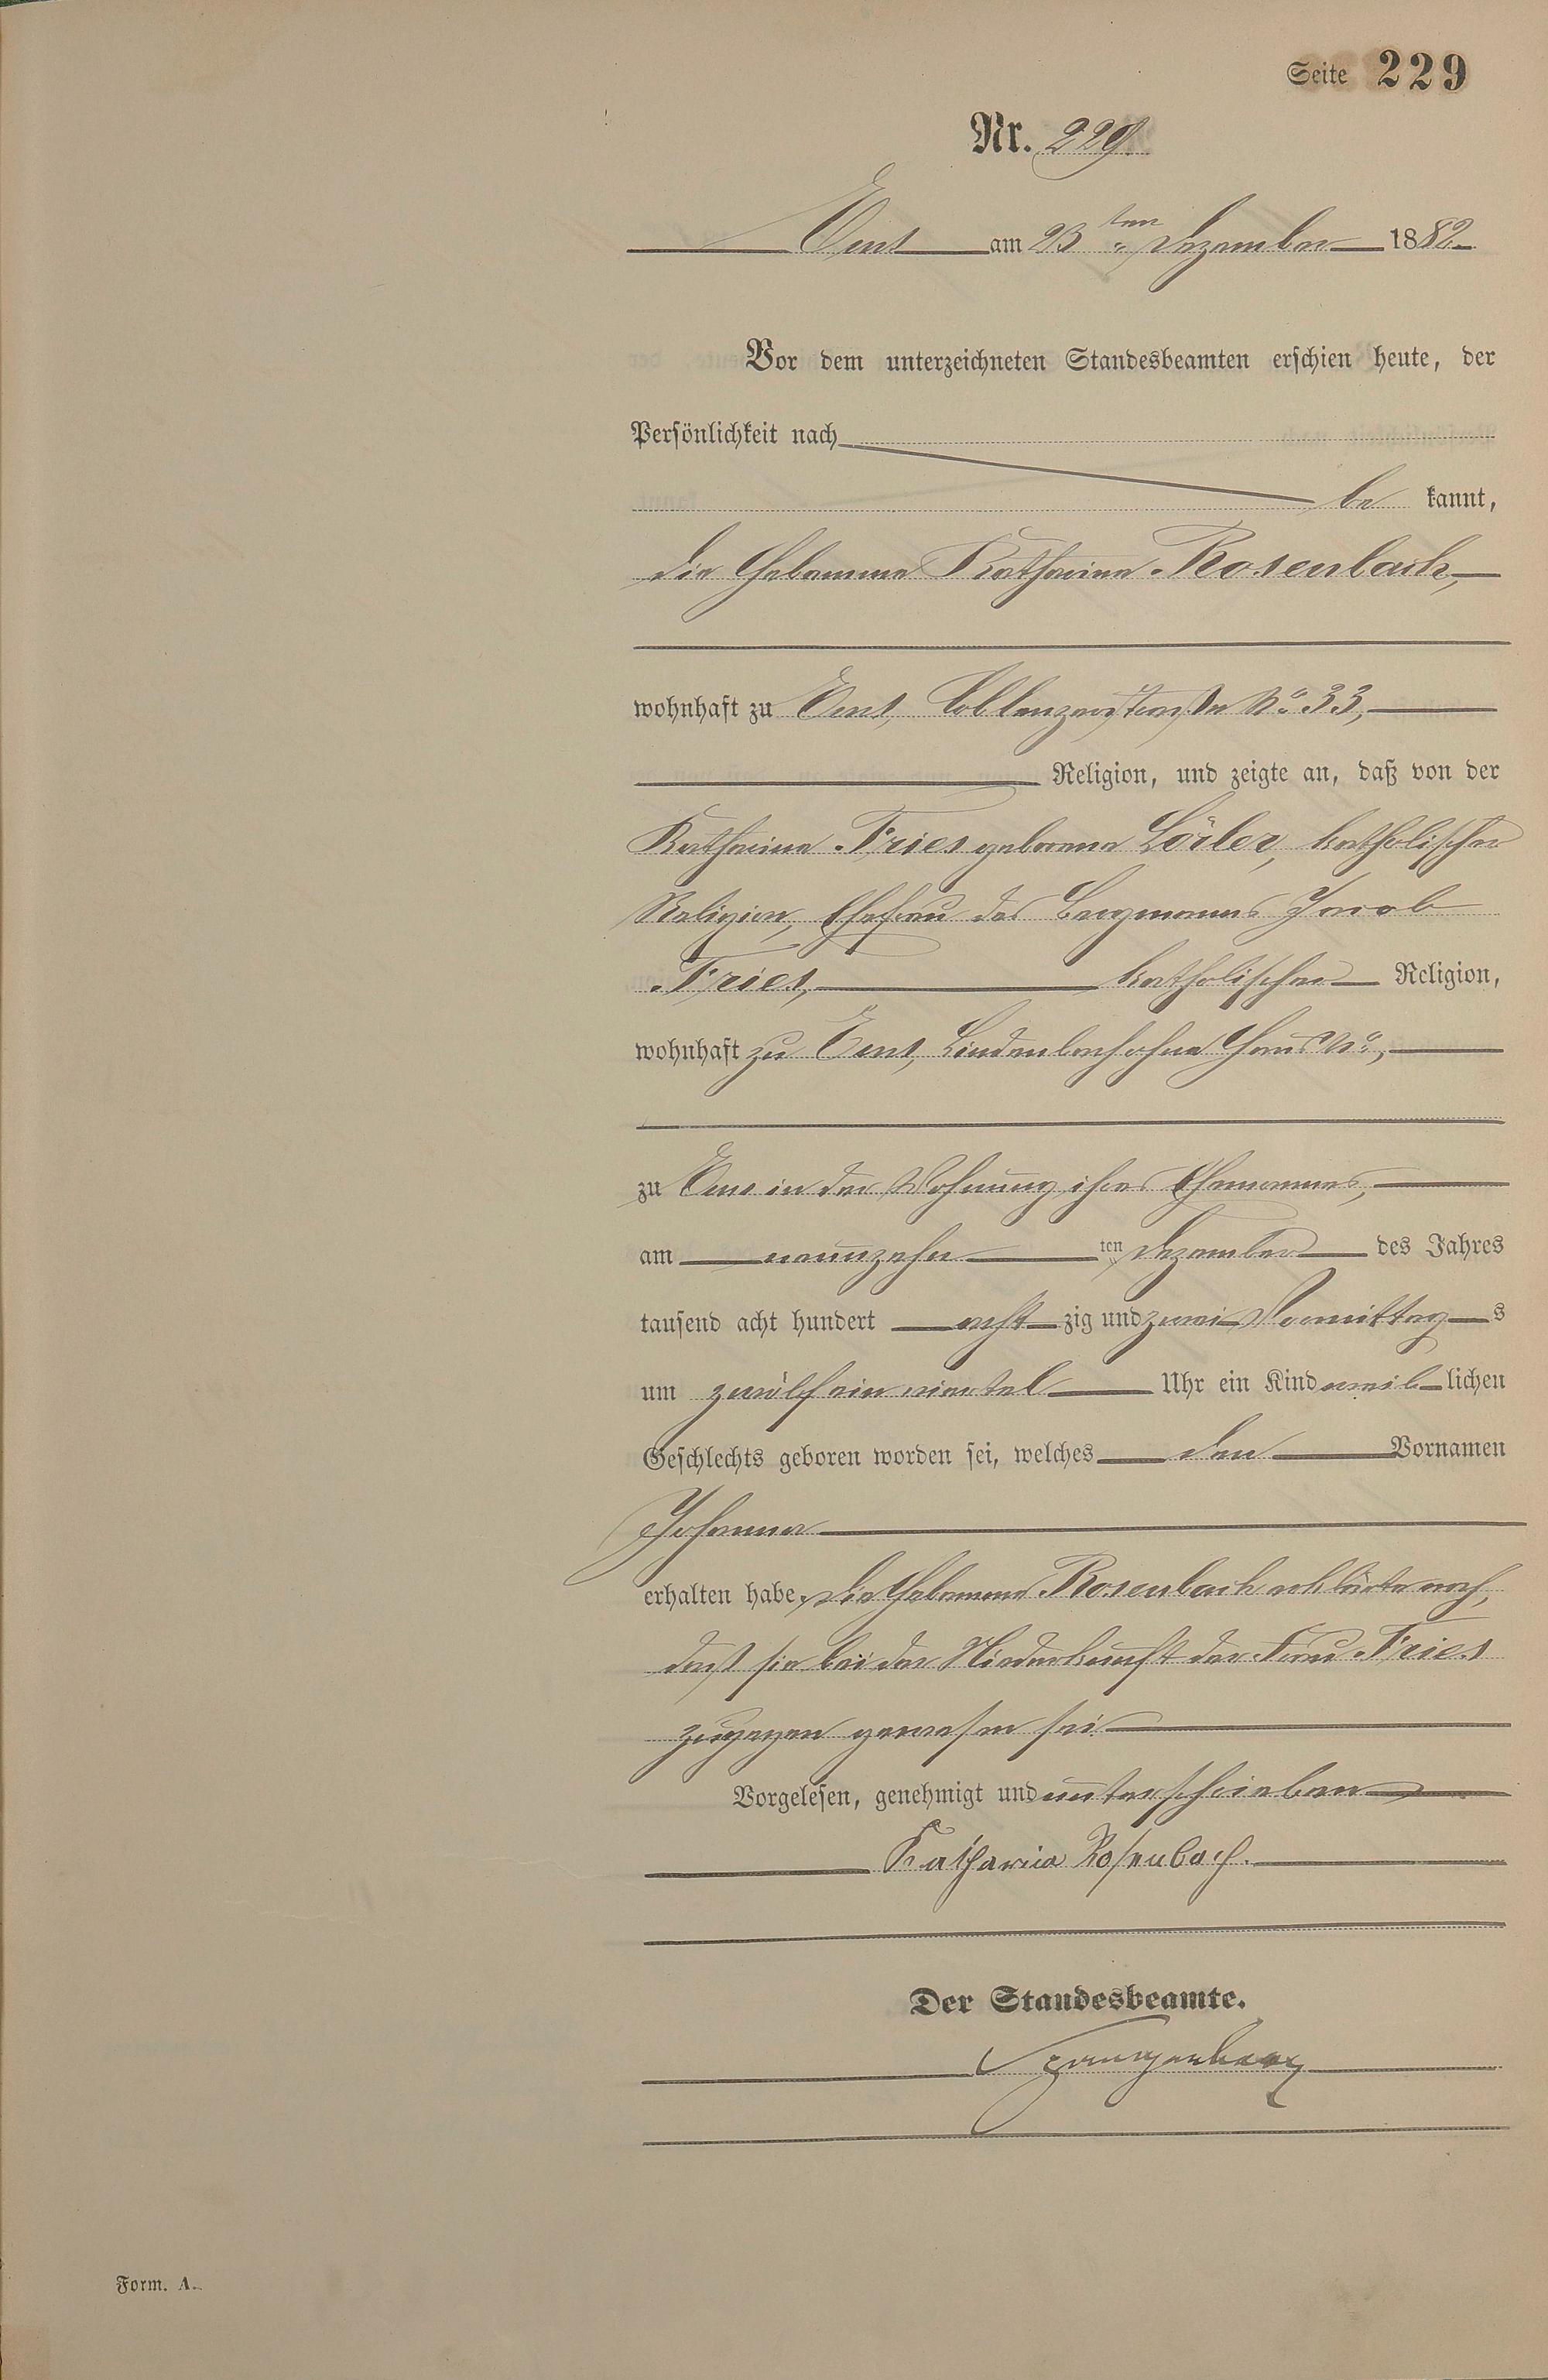 Seite 229
Nr. 229.
Ems am 23ten Dezember 1882
Vor dem unterzeichneten Standesbeamten erschien heute, der
Persönlichkeit nach
be kannt,
die Hebamme Katharina Rosenbach,
wohnhaft zu Ems, Coblenzerstraße No 33,
Religion, und zeigte an, daß von der
Katharina Fries geborene Löiler, katholischer
Religion, Ehefrau des Bergmanns Jacob
Fries, katholischer Religion,
wohnhaft zu Ems, Lindenbach ohne Haus No,
zu Ems in der Wohnung ihres Ehemannes,
am neunzehn ten Dezember des Jahres
tausend acht hundert acht zig und zwei Vormittag s
um zwölf ein viertel Uhr ein Kind weib lichen
Geschlechts geboren worden sei, welches den Vornamen
Johanna
erhalten habe. Die Hebamme Rosenbach erklärte noch,
daß sie bei der Niederkunft der Frau Fries
zugegen gewesen sei.
Vorgelesen, genehmigt und unterschrieben
Katharina Rosenbach.
Der Standesbeamte.
Spangenberg
Form. A.